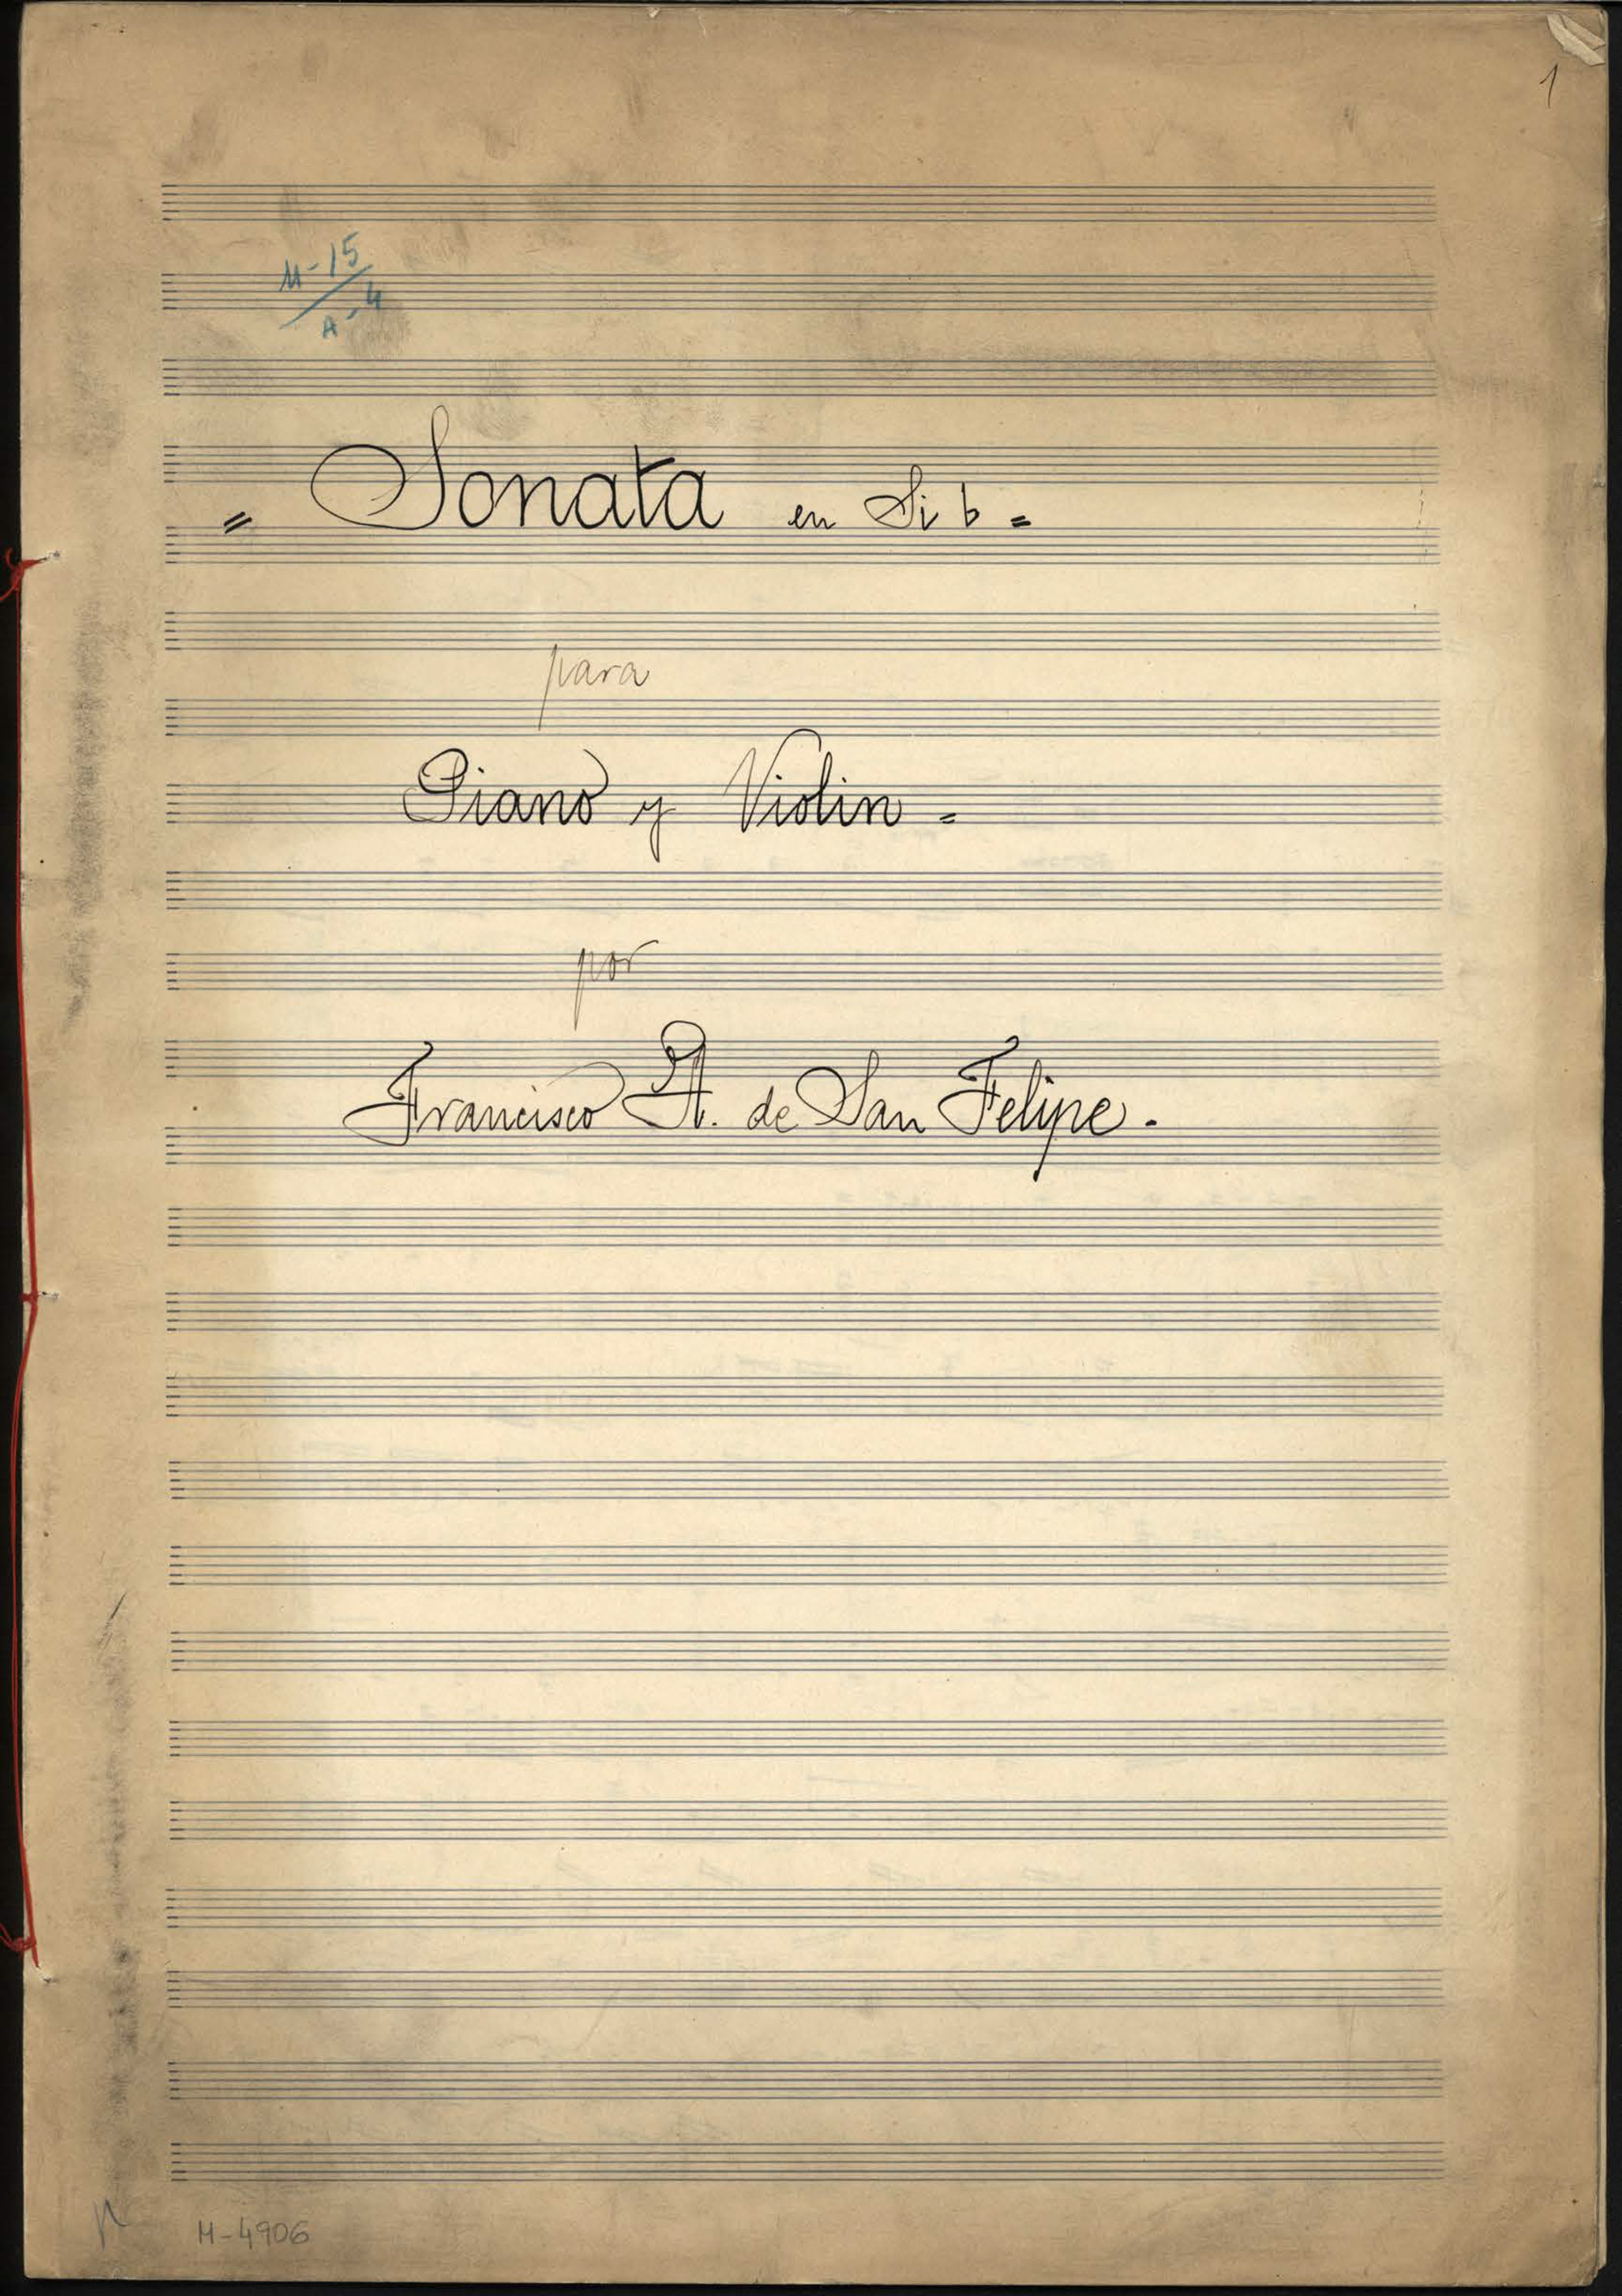 1
M-15
A-4
= Sonata en Si b =
para
Piano y Violin =
por
Francisco A. de San Felipe.
M-4906